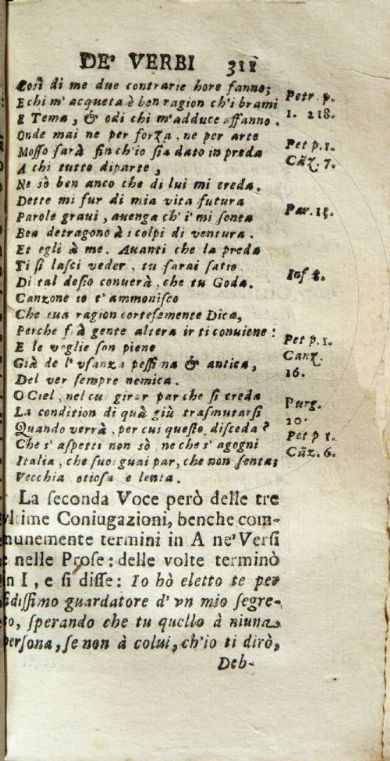 DE' VERBI 311
Così di me due contrarie hore fanno;
E chi m' acqueta è ben ragion ch'i brami Petr. p.
E Tema, & odi chi m'adduce affanno. 1. 218.
Onde mai ne per forza, ne per arte
Mosso sarà fin ch'io sia dato in preda Pet p. 1.
A chi tutto diparte, Cāz. 7.
Ne sò ben anco che di lui mi creda.
Dette mi fur di mia vita futura
Parole graui, auenga ch' i' mi senta Par. 15.
Ben detragono à i colpi di ventura.
Et egli à me. Auanti che la preda
Ti si lasci veder, tu sarai satio
Di tal desio conuerà, che tu Goda. Inf 8.
Canzone io t' ammonisco
Che tua ragion cortesemente Dica,
Perche frà gente altera ir ti conuiene:
E le voglie son piene Pet p. 1.
Già de l' vsanza pessima & antica, Canz.
Del ver sempre nemica. 16.
O Ciel, nel cui girar par che si creda
La condition di quà giù trasmutarsi Purg.
Quando verrà, per cui questo disceda? 20.
Che s' aspetti non sò, ne che s' agogni Pet p 1.
Italia, che suoi guai par, che non senta; Cāz. 6.
Vecchia otiosa e lenta.
La seconda Voce però delle tre
vltime Coniugazioni, benche com-
munemente termini in A ne' Versi
e nelle Prose: delle volte terminò
in I, e si disse: Io hò eletto te per
fidissimo guardatore d' vn mio segre-
to, sperando che tu quello à niuna
persona, se non à colui, ch'io ti dirò,
Deb-